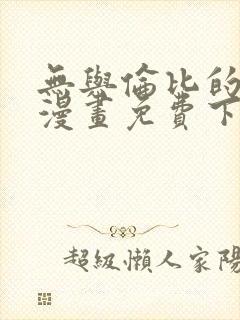 無與倫比的
漫畫免費下
超級懶人家陽